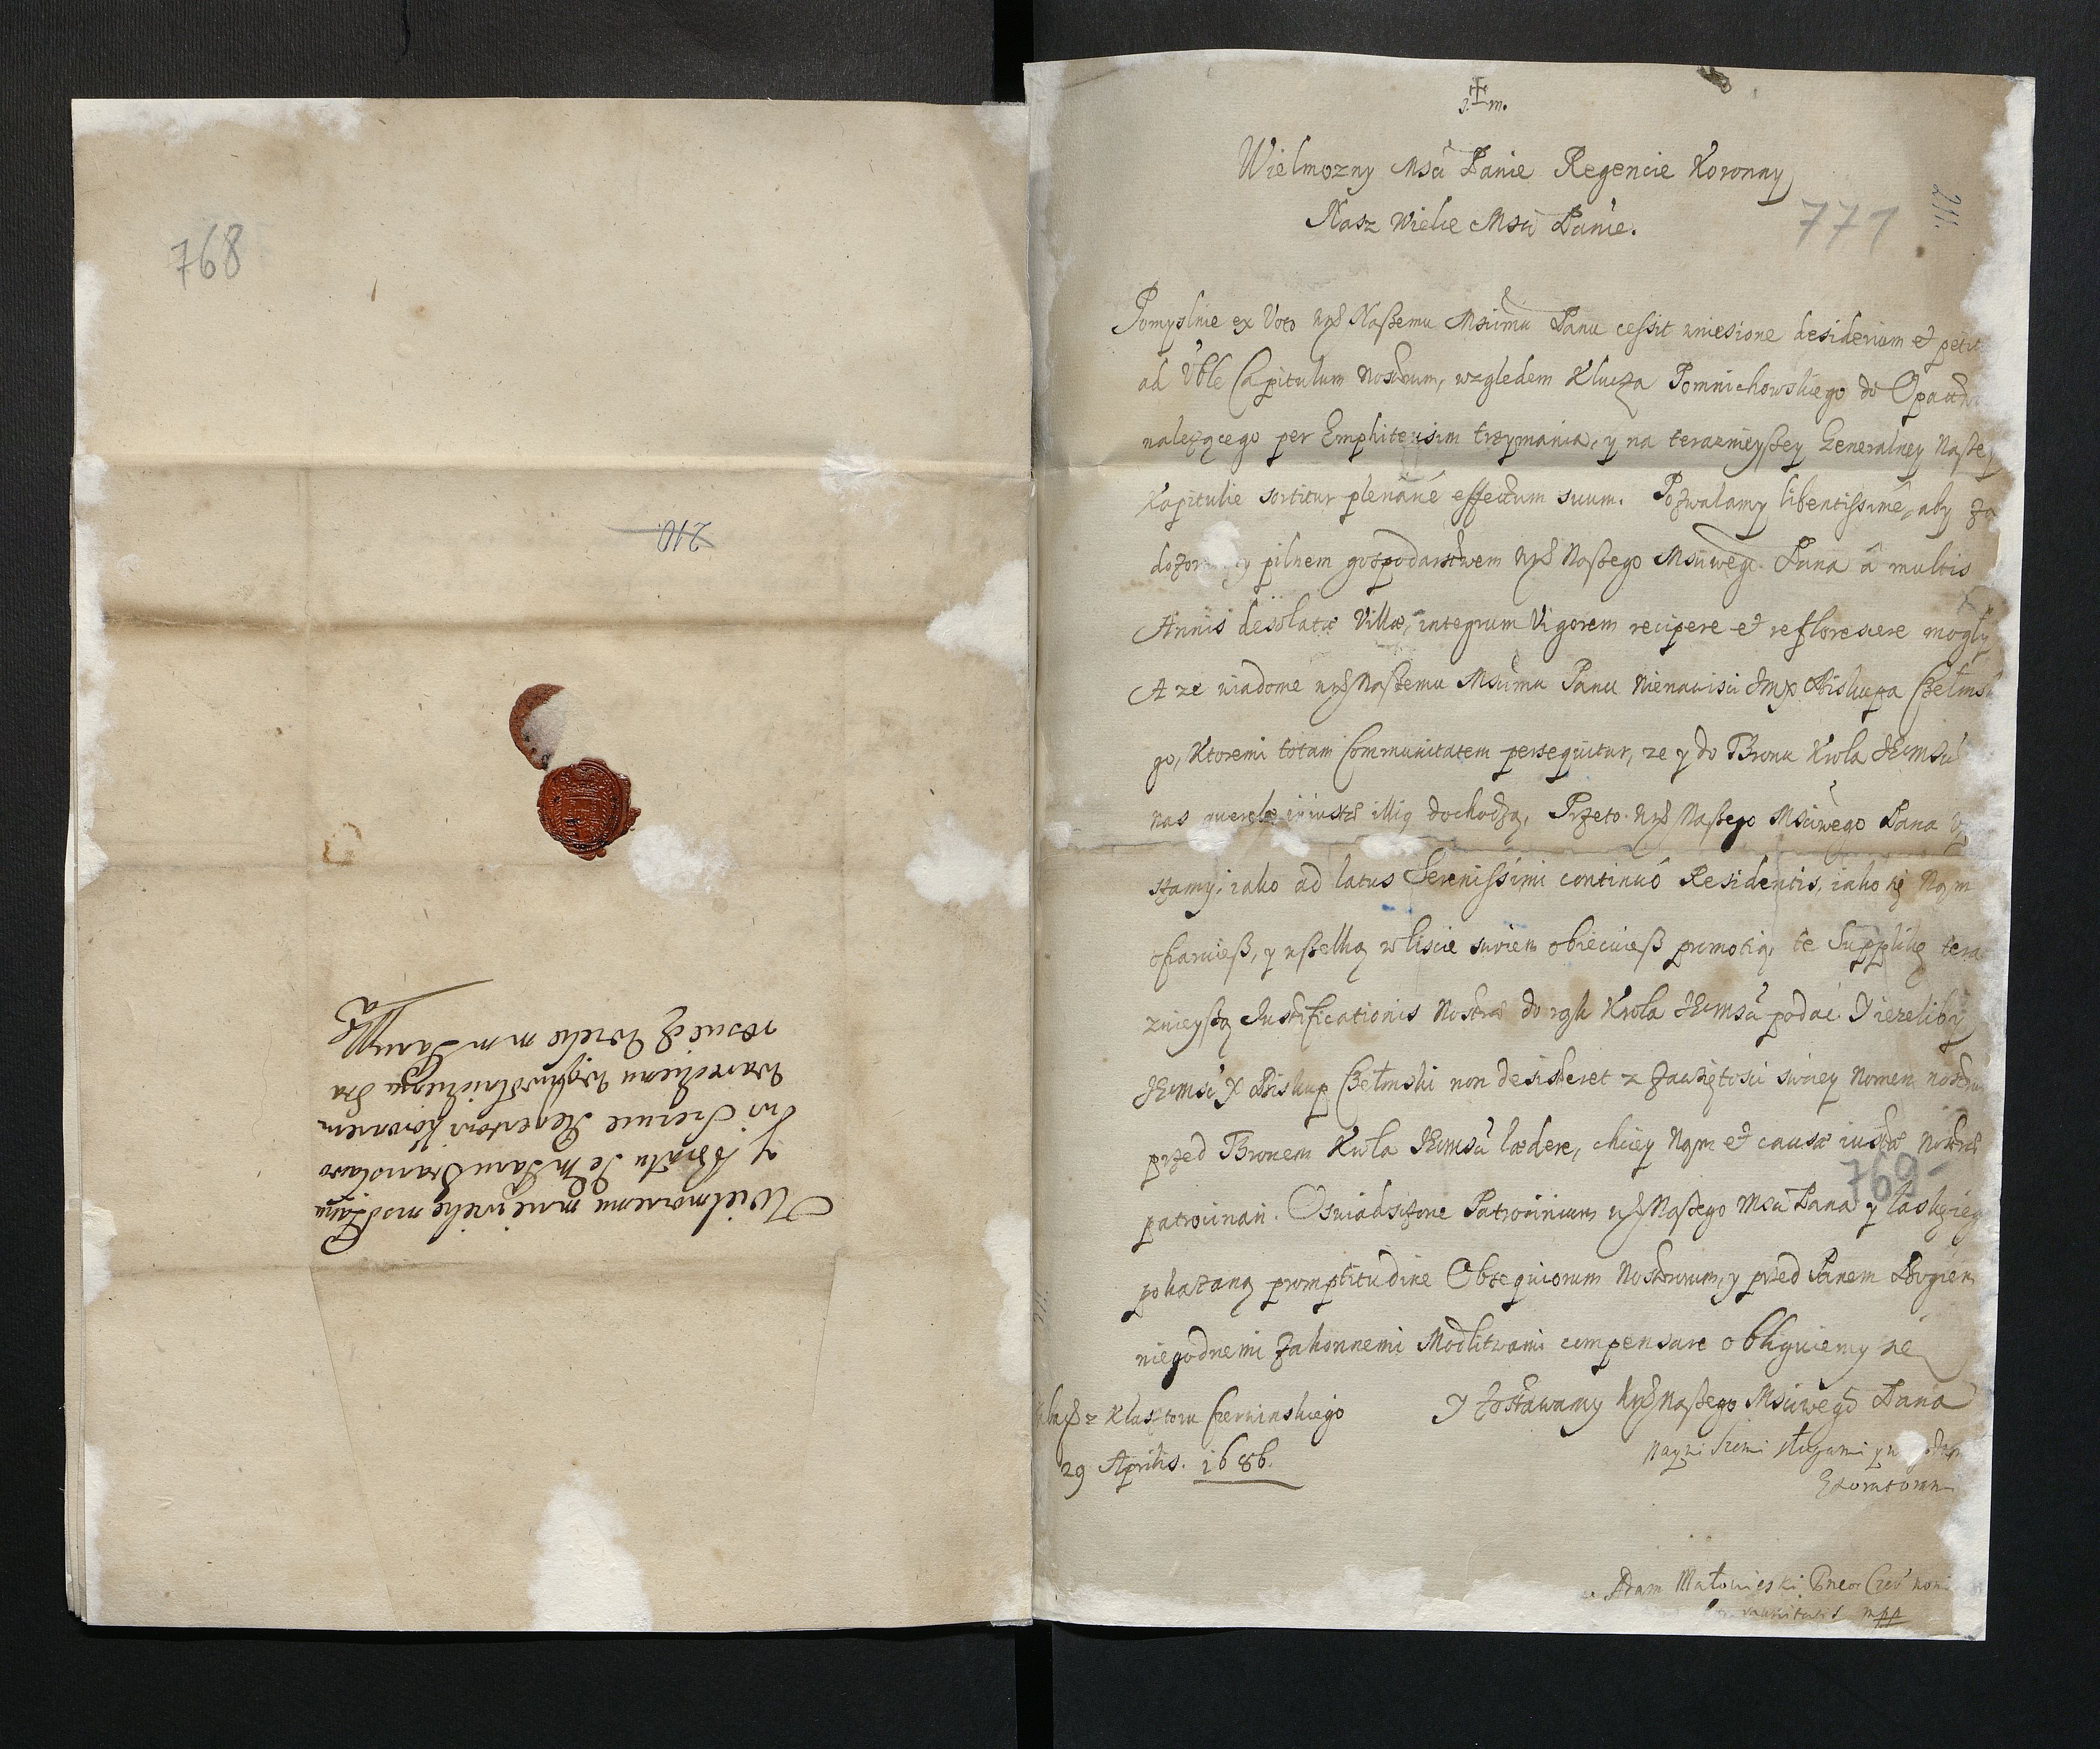 768
210.
Wielmoznemu mnie wielce mosci Panu
y Bratu Je Msci Panu Stanislawo
wi Szczuce Regentowi Koronnem
Wareckiemu Wyszkowskiemu Sta
roscie Wielce m m Panu
J. m.
Wielmozny Msci Panie Regencie Koronny
Nasz Wielce Msci Panie.
771
211.
Pomyslnie ex Voto Naszemu Msciwemu Panu cessit wniesione desiderium et petit
ad Vble Capitulum Nostrum, wzgledem Klucza Pomnichowskiego do Opactw
nalezącego per Emphiteusim trzymania, y na teraznieyszey Generalney Naszey
Kapitulie sortitur plenarie effectum suum. Pozwalamy libentissime, aby za
dozorem y pilnem gospodarstwem Naszego Msciwego Pana a multis
Annis desolatæ Villæ, integrum Vigorem recipere et reflorescere mogły
A ze wiadome Naszemu Msciwemu Panu nienawisci Jmx Biskupa Chełmsk
go, Ktoremi totam Communitatem persequitur, ze y do Tronu Krola JeoMsci
nas querelæ iniustæ illius dochodzą, Przeto Naszego Msciwego Pana
szamy, iako ad latus Serenissimi continuo Residentis, iako się Nam
ofiaruiesz, y wszelką w liscie swoiem obiecuiesz promotią, te Supplikę tera
znieyszą Justificationis Nostræ do rąk Krola JeoMsci podać. Y iezeliby
JeoMsc X Biskup Chełmski non desisteret z zawziętosci swoiey Nomen nostrum
przed Tronem Krola JeoMsci lædere, chciey Nam et causæ iustæ Nostræ
769
patrocinari. Oswiadszone Patrocinium Naszego Msci Pana y łaskę iego
pokazaną promptitudine Obsequiorum Nostrorum, y przed Panem Bogiem
niegodnemi Zakonnemi Modlitwami compensare obliguiemy sie
Y zostawamy Naszego Msciwego Pana
z Klasztoru Czerwinskiego
29 Aprilis. 1686.
Nayniszemi sługami y
Exoratorami
Adam Małowieski Prær Czer
mpp